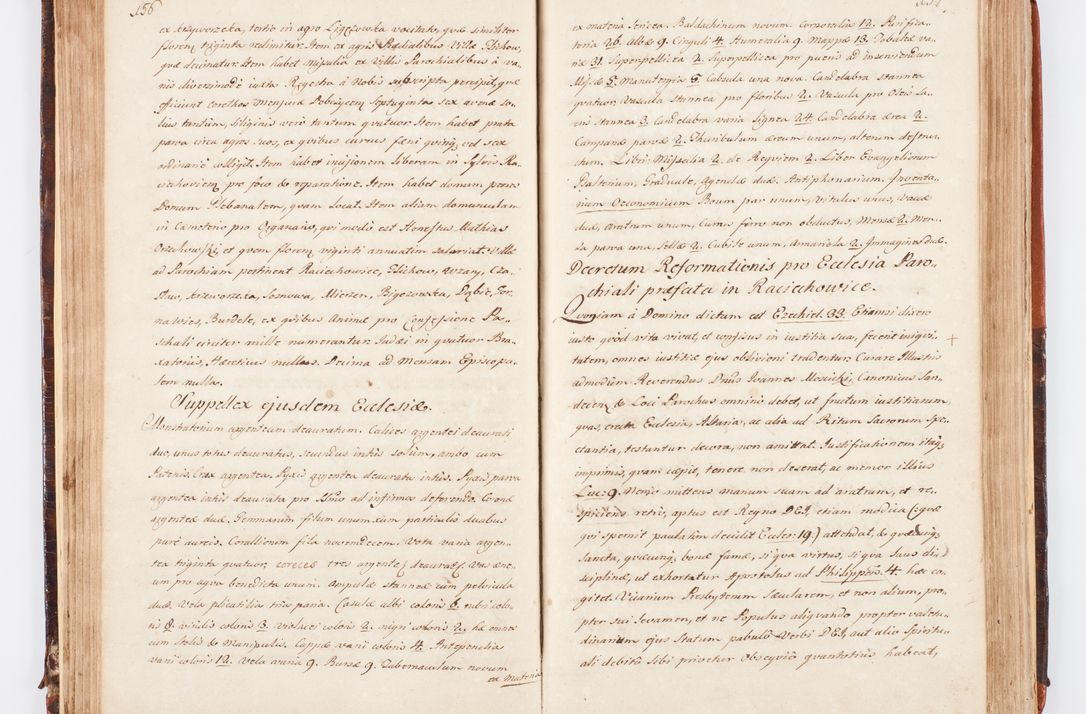 156
ex Krzyworzeka, tertio in agro Ligęzowka vocitato, quæ similiter
floren: triginta redimitur. Item ex agris Prædialibus Villæ Glichow,
quæ decimatur. Item habet Missalia ex Villis Parochialibus à va-
riis diversimodè iuxta Regestra à Nobis subscripta percipit, quæ
efficiunt Corethos Mensuræ Dobczycen: Septuaginta sex avenæ so-
lius tantum, Siliginis verò tantum quatuor. Item habet prata
parva circa agros suos, ex quibus currus fæni quinq, vel sex
ordinariè colligit. Item habet incisionem liberam in Sylvis Ra-
ciechovien: pro foco & reparatione. Item habet domum penes
Domum Plebanalem, quam locat. Item aliam domunculam
in Cæmeterio pro Organario, qui modo est Honestus Mathias
Orzchowski, et quem floren: viginti annuatim salariat. Villæ
ad Parochiam pertinent Raciechowice, Glichow, Wzary, Cza-
sław, Krzeworzeka, Sosnowa, Mierzen, Bigorzowka, Dąbie, Ger-
nawies, Burdele, ex quibus Animæ pro Confessione Pa-
schali circiter mille numerantur. Iudæi in quatuor Bra-
xatoriis, Hæreticus nullus. Decima ad Mensam Episcopa-
lem nulla.
Suppellex ejusdem Ecclesiæ.
Monstratorium argenteum deauratum. Calices argentei deaurati
duo, unus totus deauratus, secundus intùs solùm, ambo cum
Patenis. Crux argentea. Pyxis argentea deaurata intùs. Pyxis parva
argentea intùs deaurata pro SSmo ad infirmos deferendo. Coronæ
argenteæ duæ. Gemmarum filum unum cum particulis duabus
puri aureis. Corallorum fila novemdecem. Vota varia argen-
tea triginta quatuor, cereceæ tres argenteæ deauratæ. Vas æne-
um pro aqva benedicta unum. Ampulæ stanneæ cum pelvicula
duæ. Vela plicatilia tria paria. Casulæ albi coloris 6. rubri colo-
ris 8. viridis coloris 3. violacei coloris 2. nigri coloris 2. hæ omnes
cum Stolis & Manipulis. Cappæ varii coloris 4. Antependia
varii coloris 12. Vela varia 9. Bursæ 9. Tabernaculum novum
ex Materia
157
ex materia Sericea. Baldachinum novum. Corporalia 12. Purifica-
toria 26. Albæ 9. Cinguli 4. Humeralia 9. Mappæ 13. Tobaleæ va-
riæ 31. Superpellicea 2. Superpellicea pro pueris ad inserviendum
Missæ 5. Manutergia 5. Casula una nova. Candelabra stannea
quatuor. Vascula stannea pro floribus 2. Vascula pro Oleis Sa-
cris stannea 3. Candelabra varia lignea 24. Candelabra ærea 2.
Campanæ parvæ 2. Thuribulum æreum unum, alterum destruc-
tum. Libri: Missalia 2. de Reqviem 2. Liber Evangeliorum
Psalterium, Graduale, Agendæ duæ. Antiphonarium. Inventa-
rium Oeconomicum Boum par unum, Vitulus unus, vaccæ
duæ, Aratrum unum, Currus ferro non obductus, Mensæ 2. Men-
sa parva una, Sellæ 2. Cubile unum, Armariola 2. Immagines duæ.
Decretum Reformationis pro Ecclesia Paro-
chiali præfata in Raciechowice.
Quoniam à Domino dictum est Ezechiel. 33. Etiamsi dicero
iusto quòd vita vivat, et confisus in iustitia sua, fecerit iniqvi-
tatem, omnes iustitiæ ejus oblivioni tradentur. Curare Illustris
admodùm Reverendus Dnus Ioannes Mosicki, Canonicus San-
decen: & Loci Parochus omninò debet, ut fructum iustitiarum,
quas, erecta Ecclesia, Altaria, ac alia ad Ritum Sacrorum Spe-
ctantia, testantur decora, non amittat. Iustificationem itaq
imprimis, quam cæpit, tenere, non deserat, ac memor illius
Luc: 9. Nemo mittens manum suam ad aratrum, et re-
spiciens retrò, aptus est Regno DEI, etiam modica (eqvæ
qvi spernit paulatim decidit Eccles: 19.) attendat, & quæcunq
Sancta, quæcunq bonæ famæ, si qva virtus, si qva laus di-
sciplinæ, ut exhortatur Apostolus ad Philippen: 4. hæc co-
gitet. Vicarium Presbyterum Sæcularem, et non alium, pro-
pter sui levamen, et ne Populus aliqvando propter valetu-
dinariam ejus Statum pabulô Verbi DEI, aut alio Spiritu-
ali debitô sibi privetur obseqviô quantotiùs habeat,